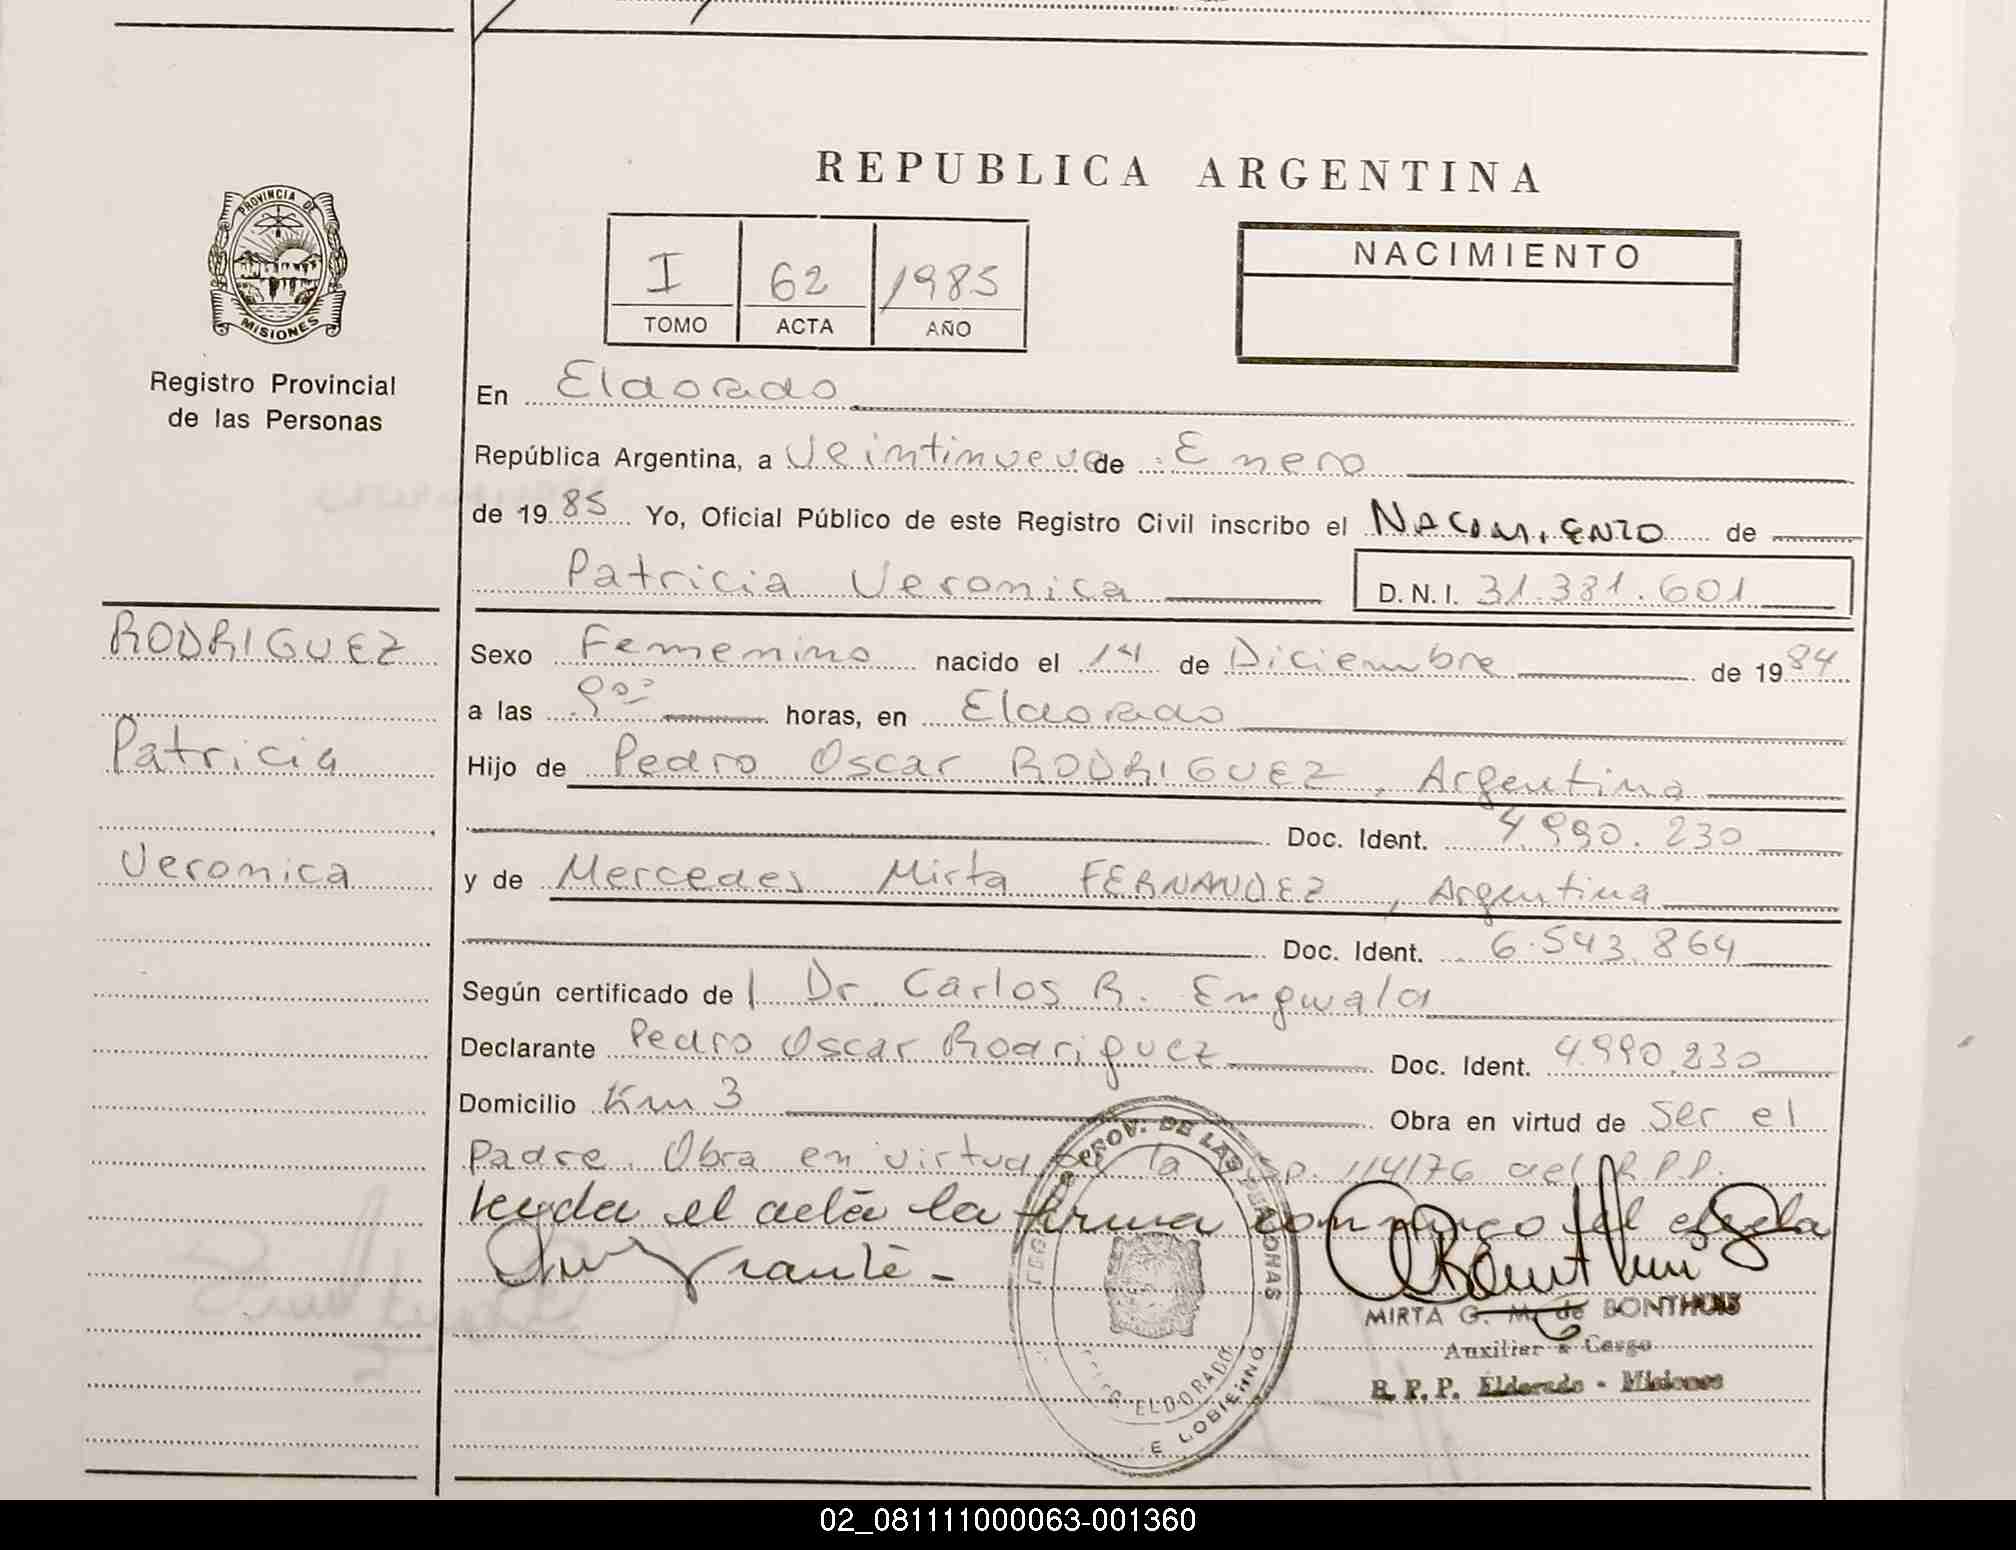 PROVINCIA DE
MISIONES
Registro Provincial
de las Personas
RODRIGUEZ
Patricia
Veronica
REPUBLICA ARGENTINA
I 62 1985
TOMO ACTA AÑO
NACIMIENTO
En Eldorado
República Argentina, a Veintinueve de Enero
de 1985 Yo, Oficial Público de este Registro Civil inscribo el NACIMIENTO de
Patricia Veronica D.N.I. 31.381.601
Sexo Femenino nacido el 14 de Diciembre de 1984
a las 9 horas, en Eldorado
Hijo de Pedro Oscar RODRIGUEZ, Argentina
Doc. Ident. 4.990.230
y de Mercedes Mirta FERNANDEZ, Argentina
Doc. Ident. 6.543.864
Según certificado de Dr. Carlos R. Engwald
Declarante Pedro Oscar Rodriguez Doc. Ident. 4.990.230
Domicilio Km 3 Obra en virtud de Ser el
Padre. Obra en virtud la Sp. 114/76 del R.P.P.
Leyda el acta la firma conmigo el
PROV. DE LAS PERSONAS
ELDORADO
MIRTA G. M. de BONTHUIS
Auxiliar a Cargo
R. P. P. Eldorado - Misiones
02_081111000063-001360